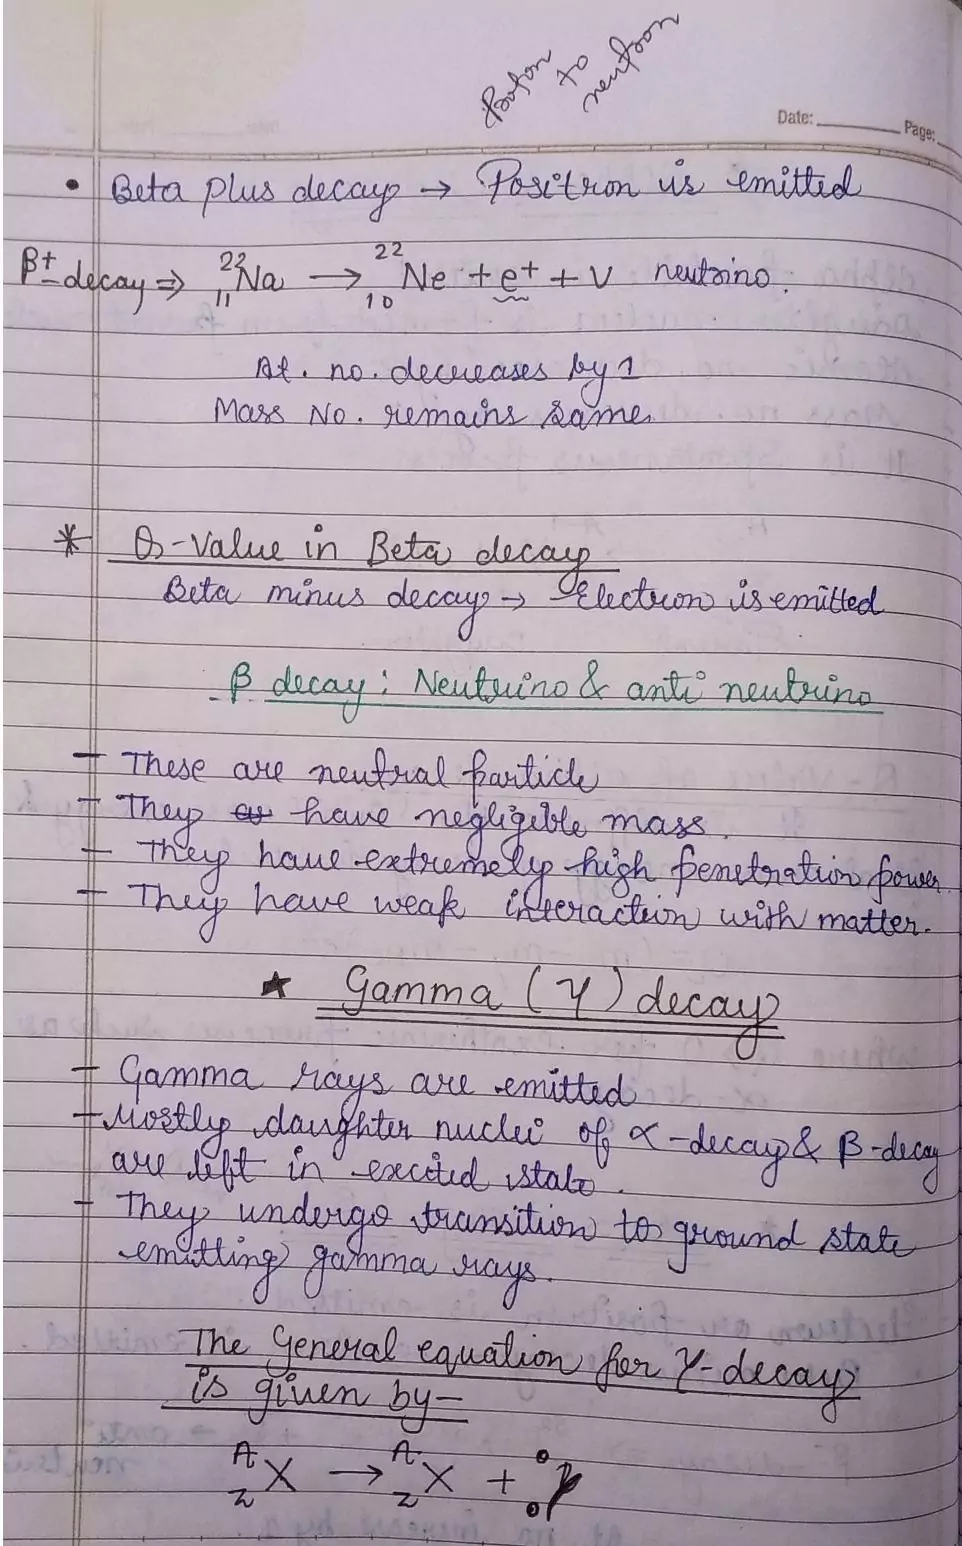 Proton
to
neutron
Date: Page:
• Beta plus decay → Positron is emitted
β+ decay ⇒ ²²₁₁Na → ²²₁₀Ne + e⁺ + ν neutrino.
At. no. decreases by 1
Mass No. remains same.
* Q-Value in Beta decay
Beta minus decay → Electron is emitted
β decay: Neutrino & anti neutrino
- These are neutral particle
- They have negligible mass.
- They have extremely high penetration power.
- They have weak interaction with matter.
★ Gamma (γ) decay
- Gamma rays are emitted
- Mostly daughter nuclei of α-decay & β-decay
are left in excited state.
- They undergo transition to ground state
emitting gamma rays.
The General equation for γ-decay
is given by-
ᴬ_Z X → ᴬ_Z X + ⁰₀γ